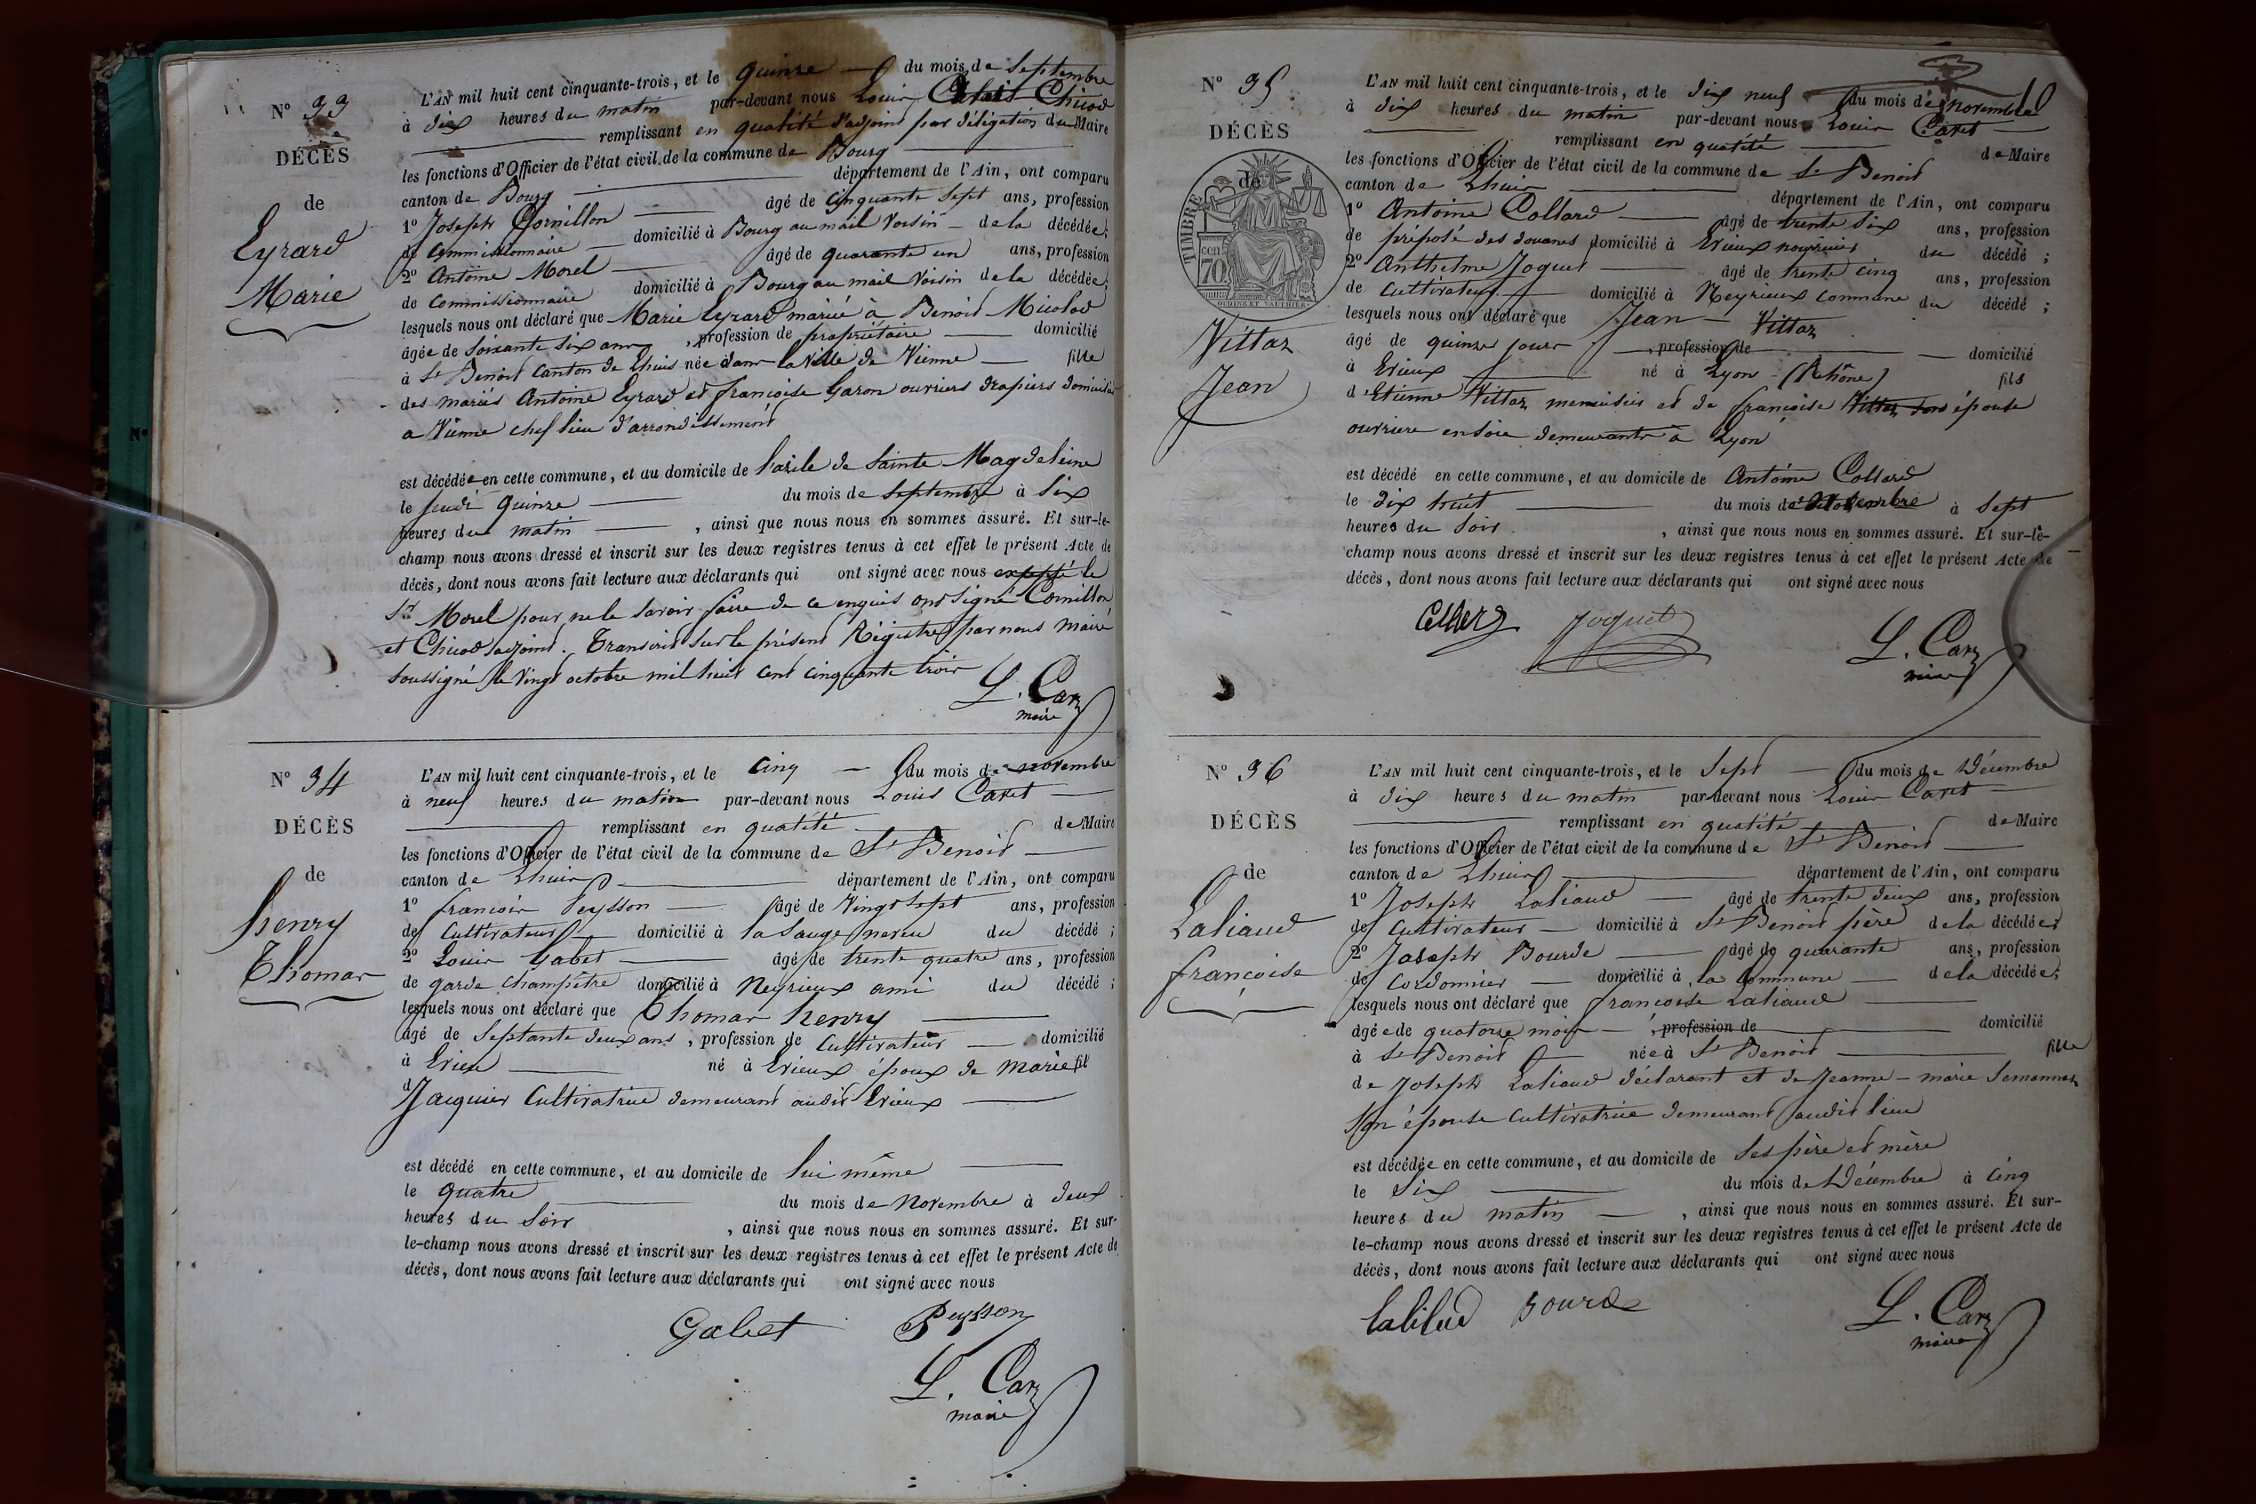 N° 33
DÉCÈS
de
Eyrard
Marie
L'AN mil huit cent cinquante-trois, et le quinze du mois de Septembre
à dix heures du matin par-devant nous Louis Chicod
remplissant en qualité d'adjoint par délégation du Maire
les fonctions d'Officier de l'état civil de la commune de Bourg
canton de Bourg département de l'Ain, ont comparu
1° Joseph Cornillon âgé de cinquante sept ans, profession
de commissionnaire domicilié à Bourg au mail voisin de la décédée;
2° Antoine Morel âgé de quarante un ans, profession
de commissionnaire domicilié à Bourg au mail voisin de la décédée;
lesquels nous ont déclaré que Marie Eyrard mariée à Benoit Micolod
âgée de soixante six ans, profession de propriétaire domicilié
à St Benoit canton de Lhuis née dans la ville de Vienne fille
des mariés Antoine Eyrard et françoise Garon ouvriers drapiers domiciliés
a Vienne chef lieu d'arrondissement
est décédée en cette commune, et au domicile de l'asile de Sainte Magdeleine
le jeudi quinze du mois de septembre à six
heures du matin, ainsi que nous nous en sommes assuré. Et sur-le-
champ nous avons dressé et inscrit sur les deux registres tenus à cet effet le présent Acte de
décès, dont nous avons fait lecture aux déclarants qui ont signé avec nous excepté le
Sr Morel pour ne le savoir faire de ce enquis ont signé Cornillon
et Chicod adjoint. Transcrit sur le présent Régistre par nous maire
soussigné le vingt octobre mil huit cent cinquante trois
L. Carz
maire
N° 34
DÉCÈS
de
henry
Thomas
L'AN mil huit cent cinquante-trois, et le cinq du mois de novembre
à neuf heures du matin par-devant nous Louis Caret
remplissant en qualité de Maire
les fonctions d'Officier de l'état civil de la commune de St Benoit
canton de Lhuis département de l'Ain, ont comparu
1° françois Peysson âgé de vingt sept ans, profession
de cultivateur domicilié à la Sauge neveu du décédé;
2° Louis Gabet âgé de trente quatre ans, profession
de garde champêtre domicilié à Neyrieux ami du décédé;
lesquels nous ont déclaré que Thomas henry
âgé de septante deux ans, profession de cultivateur domicilié
à Erieu né à Erieux époux de Marie fil
d Jacquier cultivatrice demeurant audit Erieux
est décédé en cette commune, et au domicile de lui même
le quatre du mois de Novembre à deux
heures du soir, ainsi que nous nous en sommes assuré. Et sur-
le-champ nous avons dressé et inscrit sur les deux registres tenus à cet effet le présent Acte de
décès, dont nous avons fait lecture aux déclarants qui ont signé avec nous
Gabet Peysson
L. Carz
maire
N° 35
DÉCÈS
de
TIMBRE
70
Vittoz
Jean
L'AN mil huit cent cinquante-trois, et le dix neuf du mois de novembre
à dix heures du matin par-devant nous Louis Caret
remplissant en qualité de Maire
les fonctions d'Officier de l'état civil de la commune de St Benoit
canton de Lhuis département de l'Ain, ont comparu
1° Antoine Collard âgé de trente six ans, profession
de préposé des douanes domicilié à Erieux nourricier du décédé;
2° Anthelme Joguet âgé de trente cinq ans, profession
de cultivateur domicilié à Neyrieux commune du décédé;
lesquels nous ont déclaré que Jean Vittoz
âgé de quinze jours, profession de domicilié
à Erieux né à Lyon (Rhône) fils
d'Etienne Vittoz menuisier et de françoise Vittoz son épouse
ouvriere en soie demeurants à Lyon
est décédé en cette commune, et au domicile de Antoine Collard
le dix huit du mois de Novembre à sept
heures du soir, ainsi que nous nous en sommes assuré. Et sur-le-
champ nous avons dressé et inscrit sur les deux registres tenus à cet effet le présent Acte de
décès, dont nous avons fait lecture aux déclarants qui ont signé avec nous
Joguet
L. Carz
maire
N° 36
DÉCÈS
de
Laliaud
françoise
L'AN mil huit cent cinquante-trois, et le sept du mois de Décembre
à dix heures du matin par-devant nous Louis Caret
remplissant en qualité de Maire
les fonctions d'Officier de l'état civil de la commune de St Benoit
canton de Lhuis département de l'Ain, ont comparu
1° Joseph Laliaud âgé de trente deux ans, profession
de cultivateur domicilié à St Benoit père de la décédée;
2° Joseph Bourde âgé de quarante ans, profession
de cordonnier domicilié à la commune de la décédée;
lesquels nous ont déclaré que francoise Laliaud
âgée de quatorze mois, profession de domicilié
à St Benoit née à St Benoit fille
de Joseph Laliaud déclarant et de Jeanne-marie
Son épouse cultivatrice demeurant audit lieu
est décédée en cette commune, et au domicile de ses père et mère
le six du mois de Décembre à cinq
heures du matin, ainsi que nous nous en sommes assuré. Et sur-
le-champ nous avons dressé et inscrit sur les deux registres tenus à cet effet le présent Acte de
décès, dont nous avons fait lecture aux déclarants qui ont signé avec nous
Bourde
L. Carz
maire